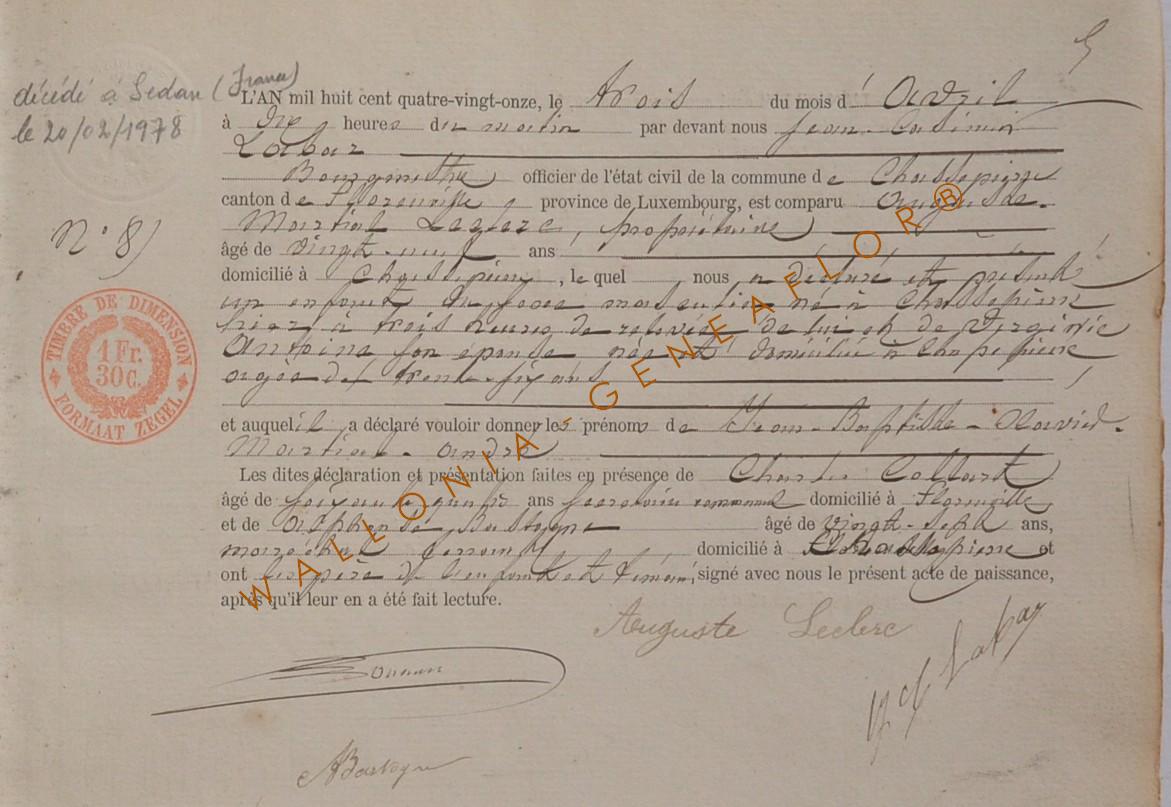 5
décédé à Sedan (France)
le 20/02/1978
N° 8)
TIMBRE DE DIMENSION
1 Fr.
30 C.
FORMAAT ZEGEL
L'AN mil huit cent quatre-vingt-onze, le trois du mois d' Avril
à dix heures du matin par devant nous Jean-Casimir
Labar
Bourgmestre officier de l'état civil de la commune de Chassepierre
canton de Florenville province de Luxembourg, est comparu Auguste-
Martial Leclerc, propriétaire
âgé de vingt-neuf ans
domicilié à Chassepierre, le quel nous a déclaré et présenté
un enfant du sexe masculin né à Chassepierre
hier à trois heures de relevée de lui et de Virginie
Antoine son épouse née et domiciliée à Chassepierre
âgée de trente-six ans
et auquel il a déclaré vouloir donner les prénoms de Jean-Baptiste-
Martial-André
Les dites déclaration et présentation faites en présence de Charles
âgé de soixante quatre ans secrétaire communal domicilié à Florenville
et de Alphonse Bastogne âgé de vingt-sept ans,
maréchal ferrant domicilié à Chassepierre et
ont les père de l'enfant et témoins, signé avec nous le présent acte de naissance,
après qu'il leur en a été fait lecture.
Auguste Leclerc
J C Labar
ABastogne
WALLONIA-GENEAFLOR®